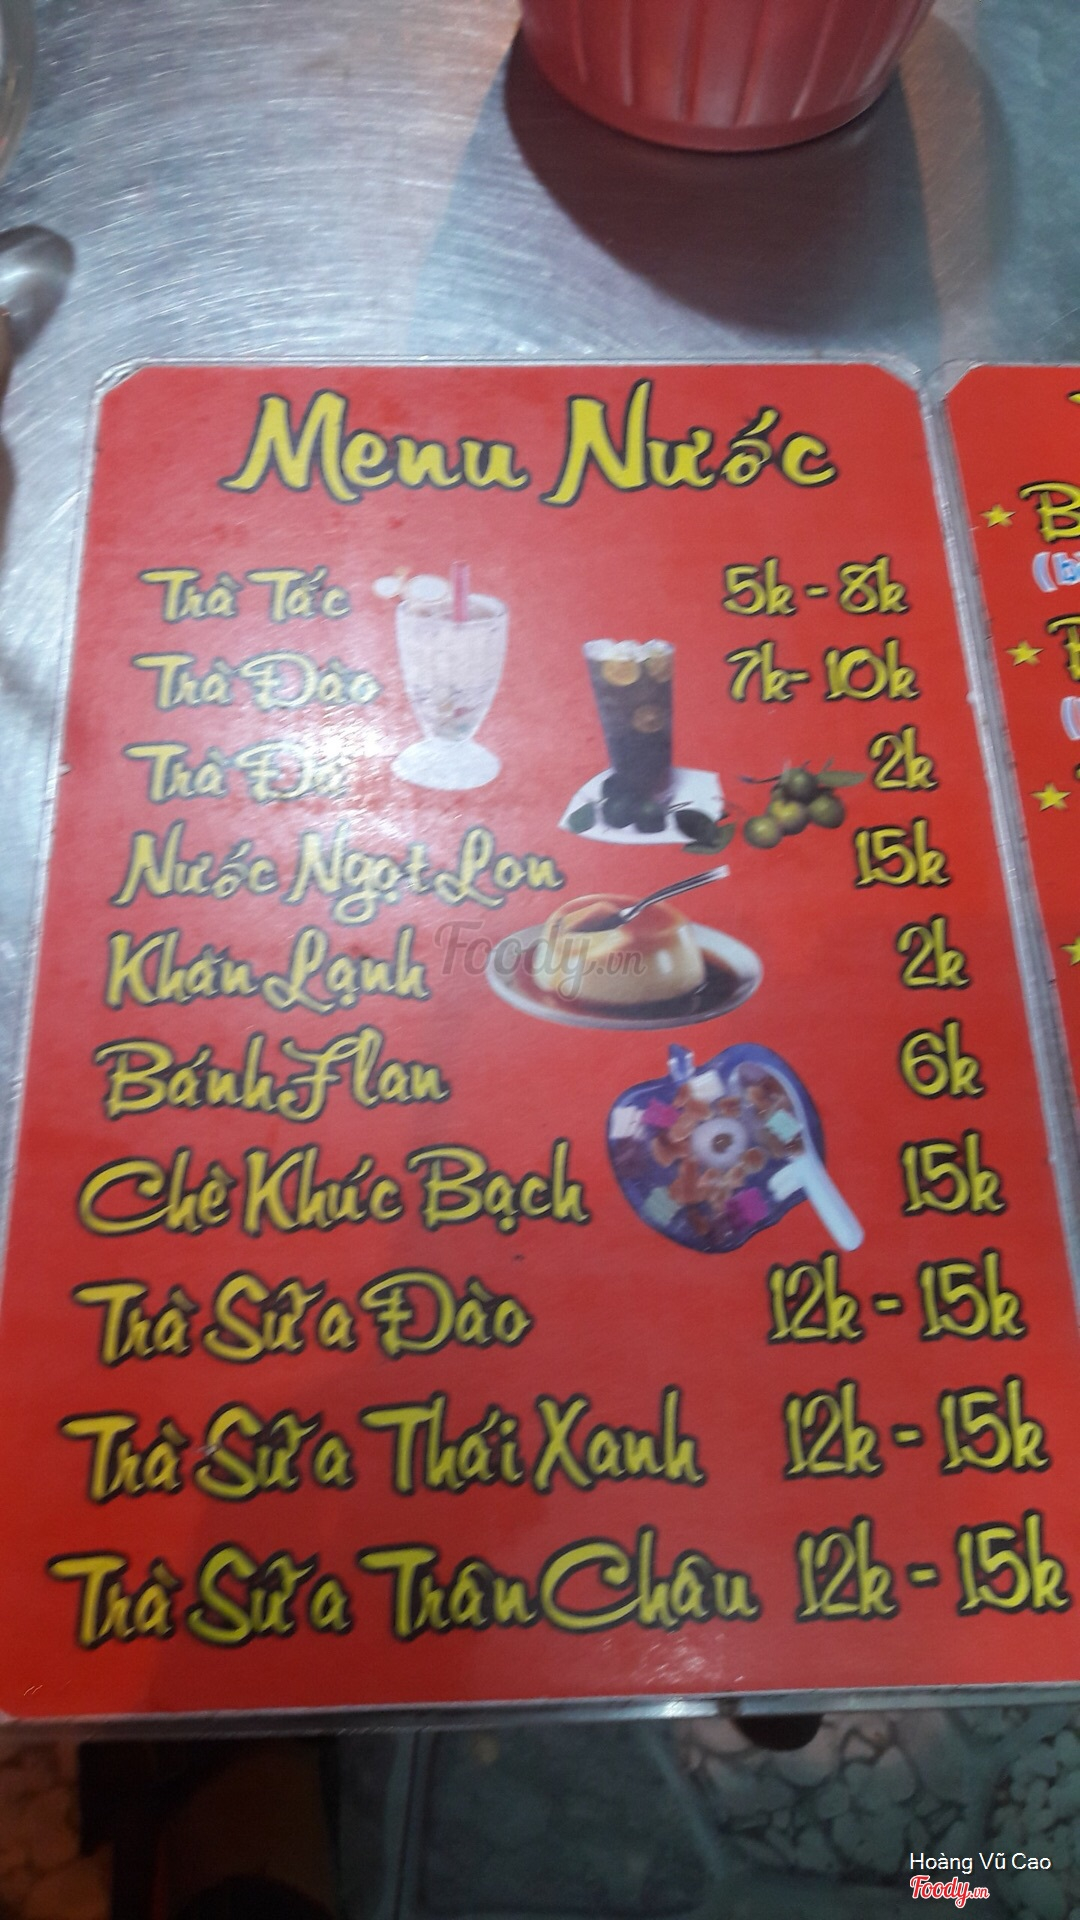 Menu Nước
Trà Tắc 5k - 8k
Trà Đào 7k - 10k
Trà Đá 2k
Nước Ngọt Lon 15k
Khăn Lạnh 2k
Bánh Flan 6k
Chè Khúc Bạch 15k
Trà Sữa Đào 12k - 15k
Trà Sữa Thái Xanh 12k - 15k
Trà Sữa Trân Châu 12k - 15k
Foody.vn
Hoàng Vũ Cao
Foody.vn